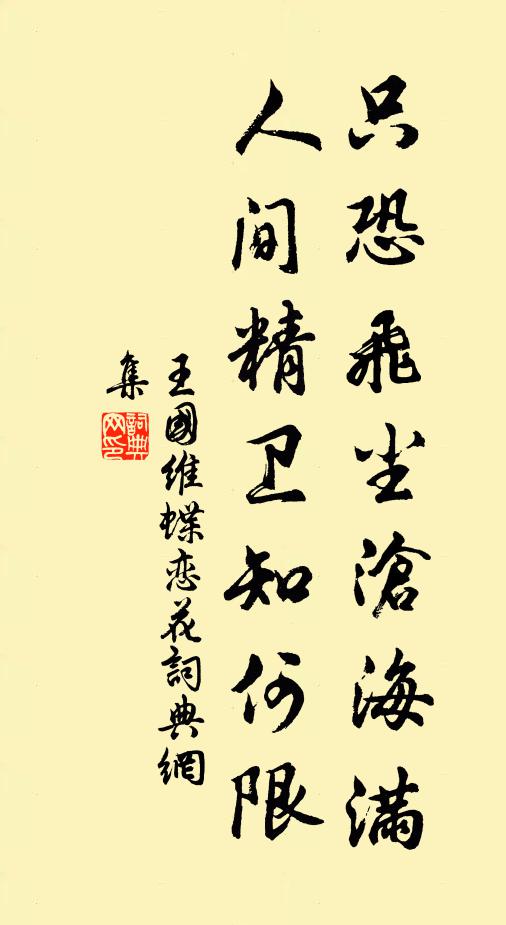 只恐飛尘滄海滿
人间精卫知何限
王國維蝶恋花詞典網
集
詞典网印